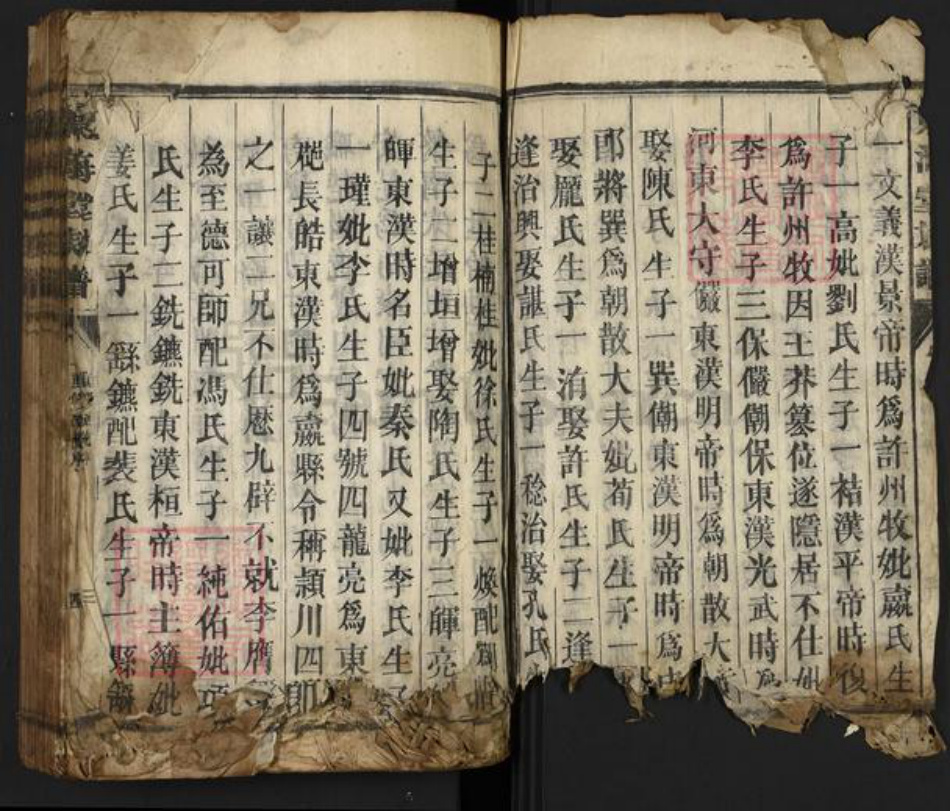 一文義漢景帝時爲許州牧妣嬴氏生
子一高妣劉氏生子一桔漢平帝時後
爲許州牧因王莽篡位遂隱居不仕
李氏生子三保儼僩保東漢光武時爲
河東大守儼東漢明帝時爲朝散大
娶陳氏生子一巽僩東漢明帝時爲
郎將巽爲朝散大夫妣荀氏生子一
娶龎氏生子一洧娶許氏生子二逢
逢治興娶諶氏生子一稔治娶孔氏
子二桂楠桂妣徐氏生子一煥配
生子二增垣增娶陶氏生子三暉亮
暉東漢時名臣妣秦氏又妣李氏生子
一瑾妣李氏生子四號四龍亮爲東
麗長皓東漢時爲嬴縣令稱潁川四郎
之一讓二兄不仕歷九辟不就李膺
為至德可師配馮氏生子一純佑妣
氏生子二銑鑣銑東漢桓帝時主簿妣
姜氏生子一繇鑣配裴氏生子一縣
譜
四